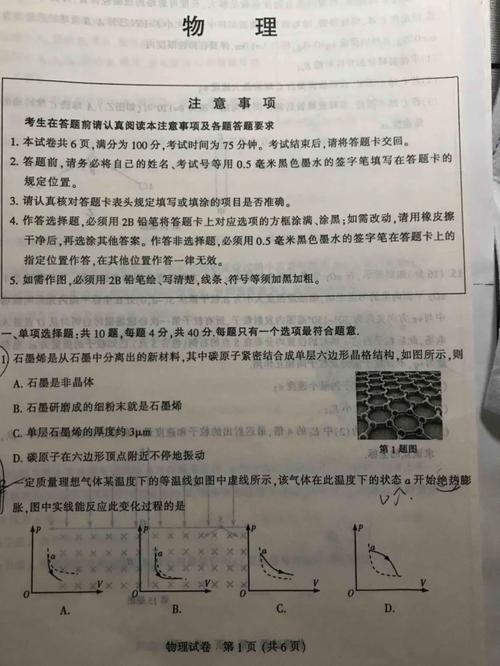 物 理
注 意 事 项
考生在答题前请认真阅读本注意事项及各题答题要求
1. 本试卷共 6 页,满分为 100 分,考试时间为 75 分钟。考试结束后,请将答题卡交回。
2. 答题前,请务必将自己的姓名、考试号等用 0.5 毫米黑色墨水的签字笔填写在答题卡的
规定位置。
3. 请认真核对答题卡表头规定填写或填涂的项目是否准确。
4. 作答选择题,必须用 2B 铅笔将答题卡上对应选项的方框涂满、涂黑;如需改动,请用橡皮擦
干净后,再选涂其他答案。作答非选择题,必须用 0.5 毫米黑色墨水的签字笔在答题卡上的
指定位置作答,在其他位置作答一律无效。
5. 如需作图,必须用 2B 铅笔绘、写清楚,线条、符号等须加黑加粗。
一、单项选择题:共 10 题,每题 4 分,共 40 分,每题只有一个选项最符合题意.
1 石墨烯是从石墨中分离出的新材料,其中碳原子紧密结合成单层六边形晶格结构,如图所示,则
A. 石墨是非晶体
B. 石墨研磨成的细粉末就是石墨烯
C. 单层石墨烯的厚度约 3μm
D. 碳原子在六边形顶点附近不停地振动
第 1 题图
一定质量理想气体某温度下的等温线如图中虚线所示,该气体在此温度下的状态 a 开始绝热膨
胀,图中实线能反应此变化过程的是
V个.
p a O V
A.
p a O V
B.
p a O V
C.
p a O V
D.
物理试卷 第 1 页 (共 6 页)